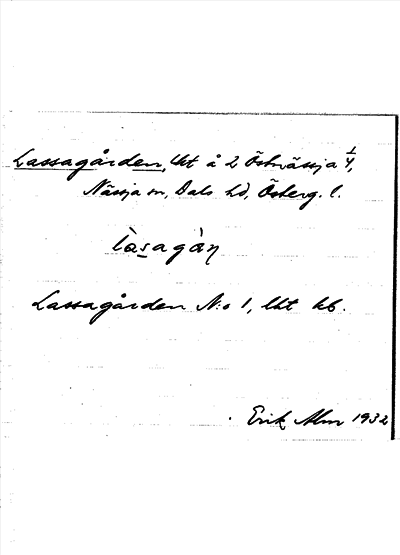 Lassagården, lht å 2 Östnässja 1/4,
Nässja sn, Dals hd, Österg. l.
làsagàṇ
Lassagården N:o 1, lht kb.
Erik Alm 1932